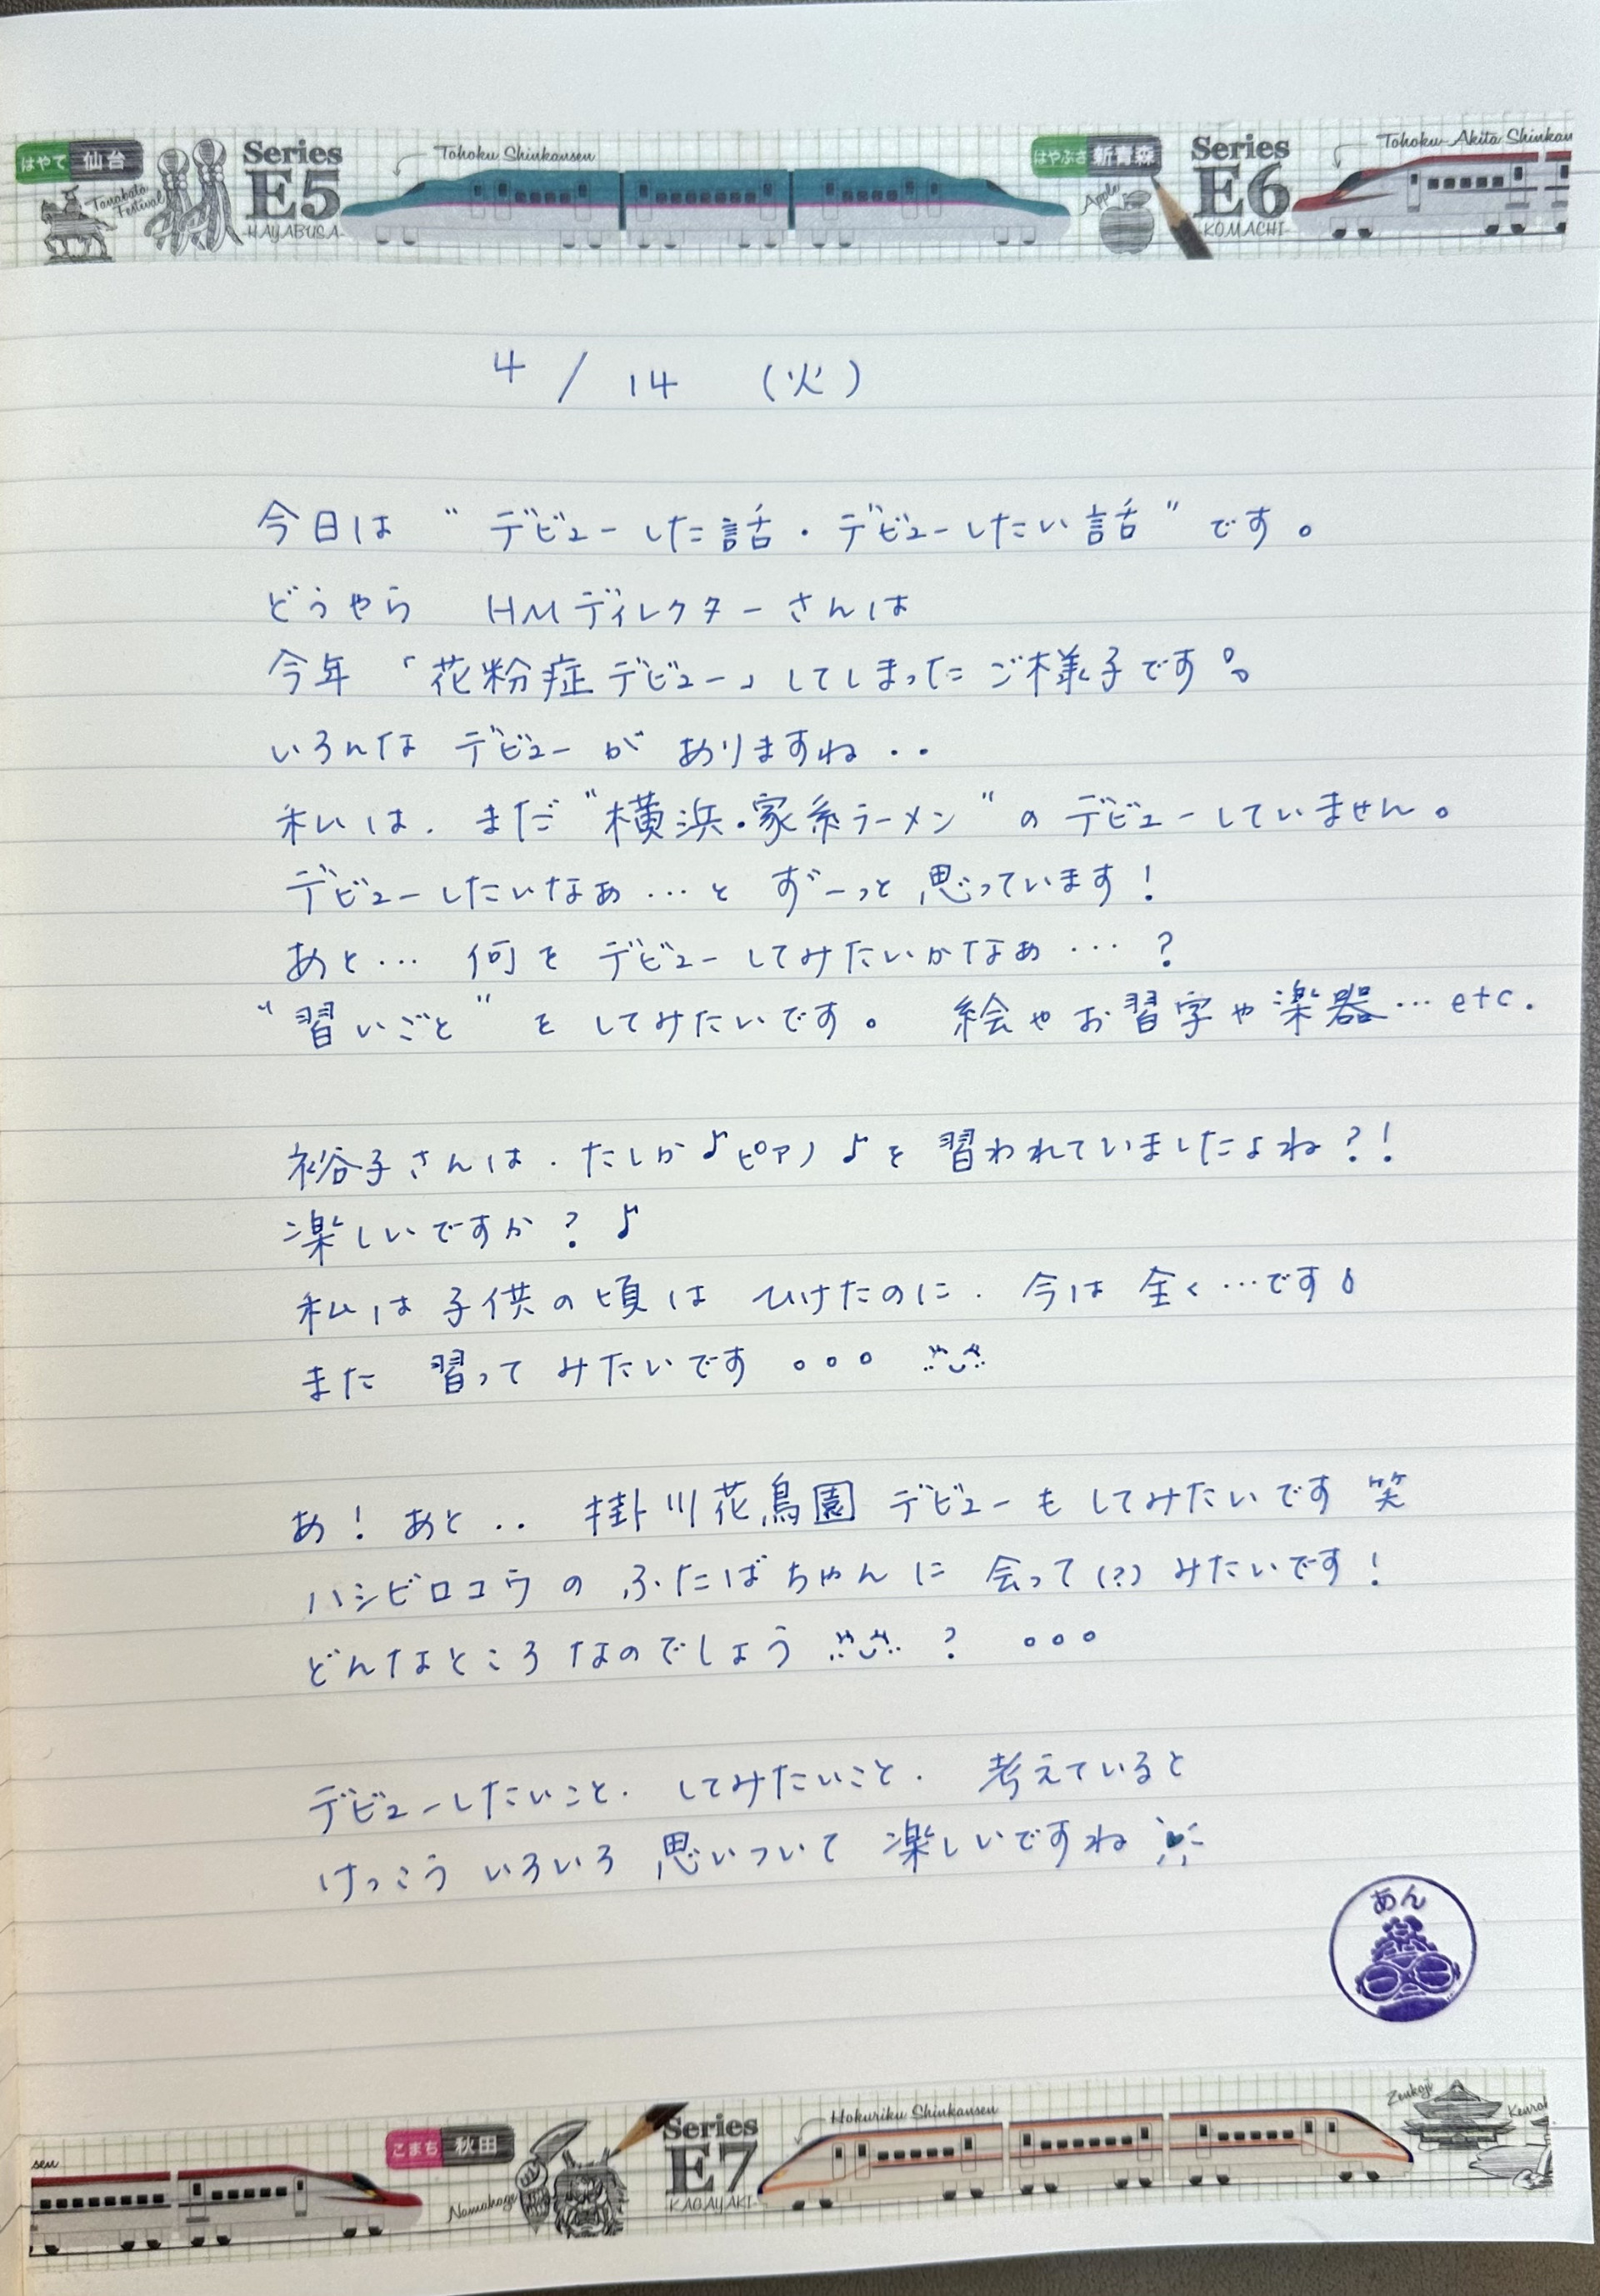 はやて 仙台
Tanabata Festival
Series E5 HAYABUSA
Tohoku Shinkansen
はやぶさ 新青森
Apple
Series E6 KOMACHI
Tohoku-Akita Shinkan
4/14 (火)
今日は “デビューした話・デビューしたい話” です。
どうやら HMディレクターさんは
今年「花粉症デビュー」してしまったご様子です。
いろんな デビューが ありますね‥
私は、まだ“横浜・家系ラーメン”の デビューしていません。
デビューしたいなぁ…と ずーっと 思っています!
あと… 何を デビューしてみたいかなぁ…?
“習いごと” を してみたいです。 絵やお習字や楽器…etc.
裕子さんは、たしか♪ピアノ♪を 習われていましたよね?!
楽しいですか?♪
私は子供の頃は ひけたのに、今は 全く…です
また 習って みたいです。。。
あ! あと‥ 掛川花鳥園 デビューも してみたいです 笑
ハシビロコウの ふたばちゃんに 会って(?) みたいです!
どんなところ なのでしょう ? 。。。
デビューしたいこと、してみたいこと、考えていると
けっこう いろいろ 思いついて 楽しいですね
あん
sen
こまち 秋田
Namahage
Series E7 KAGAYAKI
Hokuriku Shinkansen
Zenkoji
Kenro